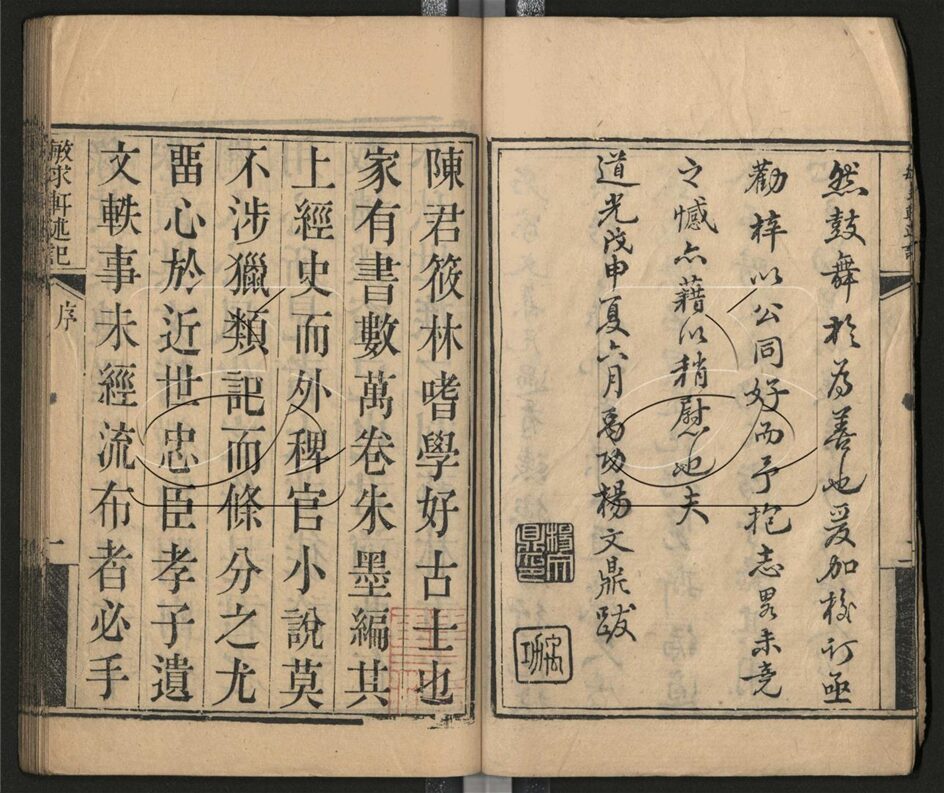 然鼓舞於為善也爰加校訂亟
勸梓以公同好而予抱志畧未竟
之憾亦藉以稍慰也夫
道光戊申夏六月禹功楊文鼎跋
陳君筱林嗜學好古士也
家有書數萬卷朱墨編其
上經史而外稗官小說莫
不涉獵類記而條分之尤
畱心於近世忠臣孝子遺
文軼事未經流布者必手
敏求軒述記
序
一